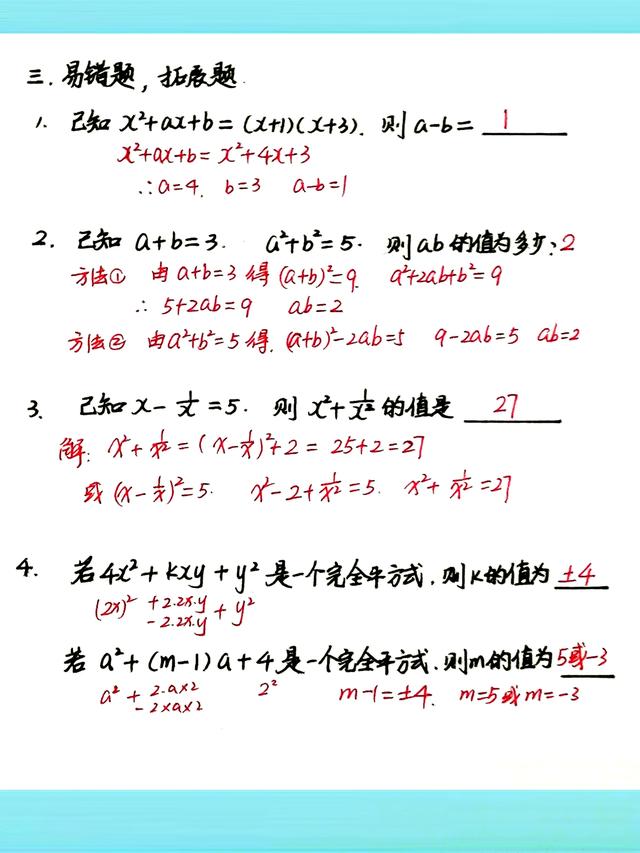 三.易错题,拓展题.
1. 已知 x²+ax+b=(x+1)(x+3). 则 a-b= 1
x²+ax+b= x²+4x+3
∴a=4. b=3 a-b=1
2. 已知 a+b=3. a²+b²=5. 则ab的值为多少?2
方法① 由a+b=3得(a+b)²=9. a²+2ab+b²=9
∴ 5+2ab=9 ab=2
方法② 由a²+b²=5得.(a+b)²-2ab=5 9-2ab=5 ab=2
3. 已知 x-1/x=5. 则 x²+1/x²的值是 27
解: x²+1/x²=(x-1/x)²+2= 25+2=27
或(x-1/x)²=5. x²-2+1/x²=5. x²+1/x²=27
4. 若4x²+kxy+y²是一个完全平方式.则k的值为 ±4
(2x)² +2·2x·y -2·2x·y +y²
若 a²+(m-1)a+4是一个完全平方式.则m的值为5或-3
a² + 2·a×2 - 2×a×2 2² m-1=±4. m=5或m=-3